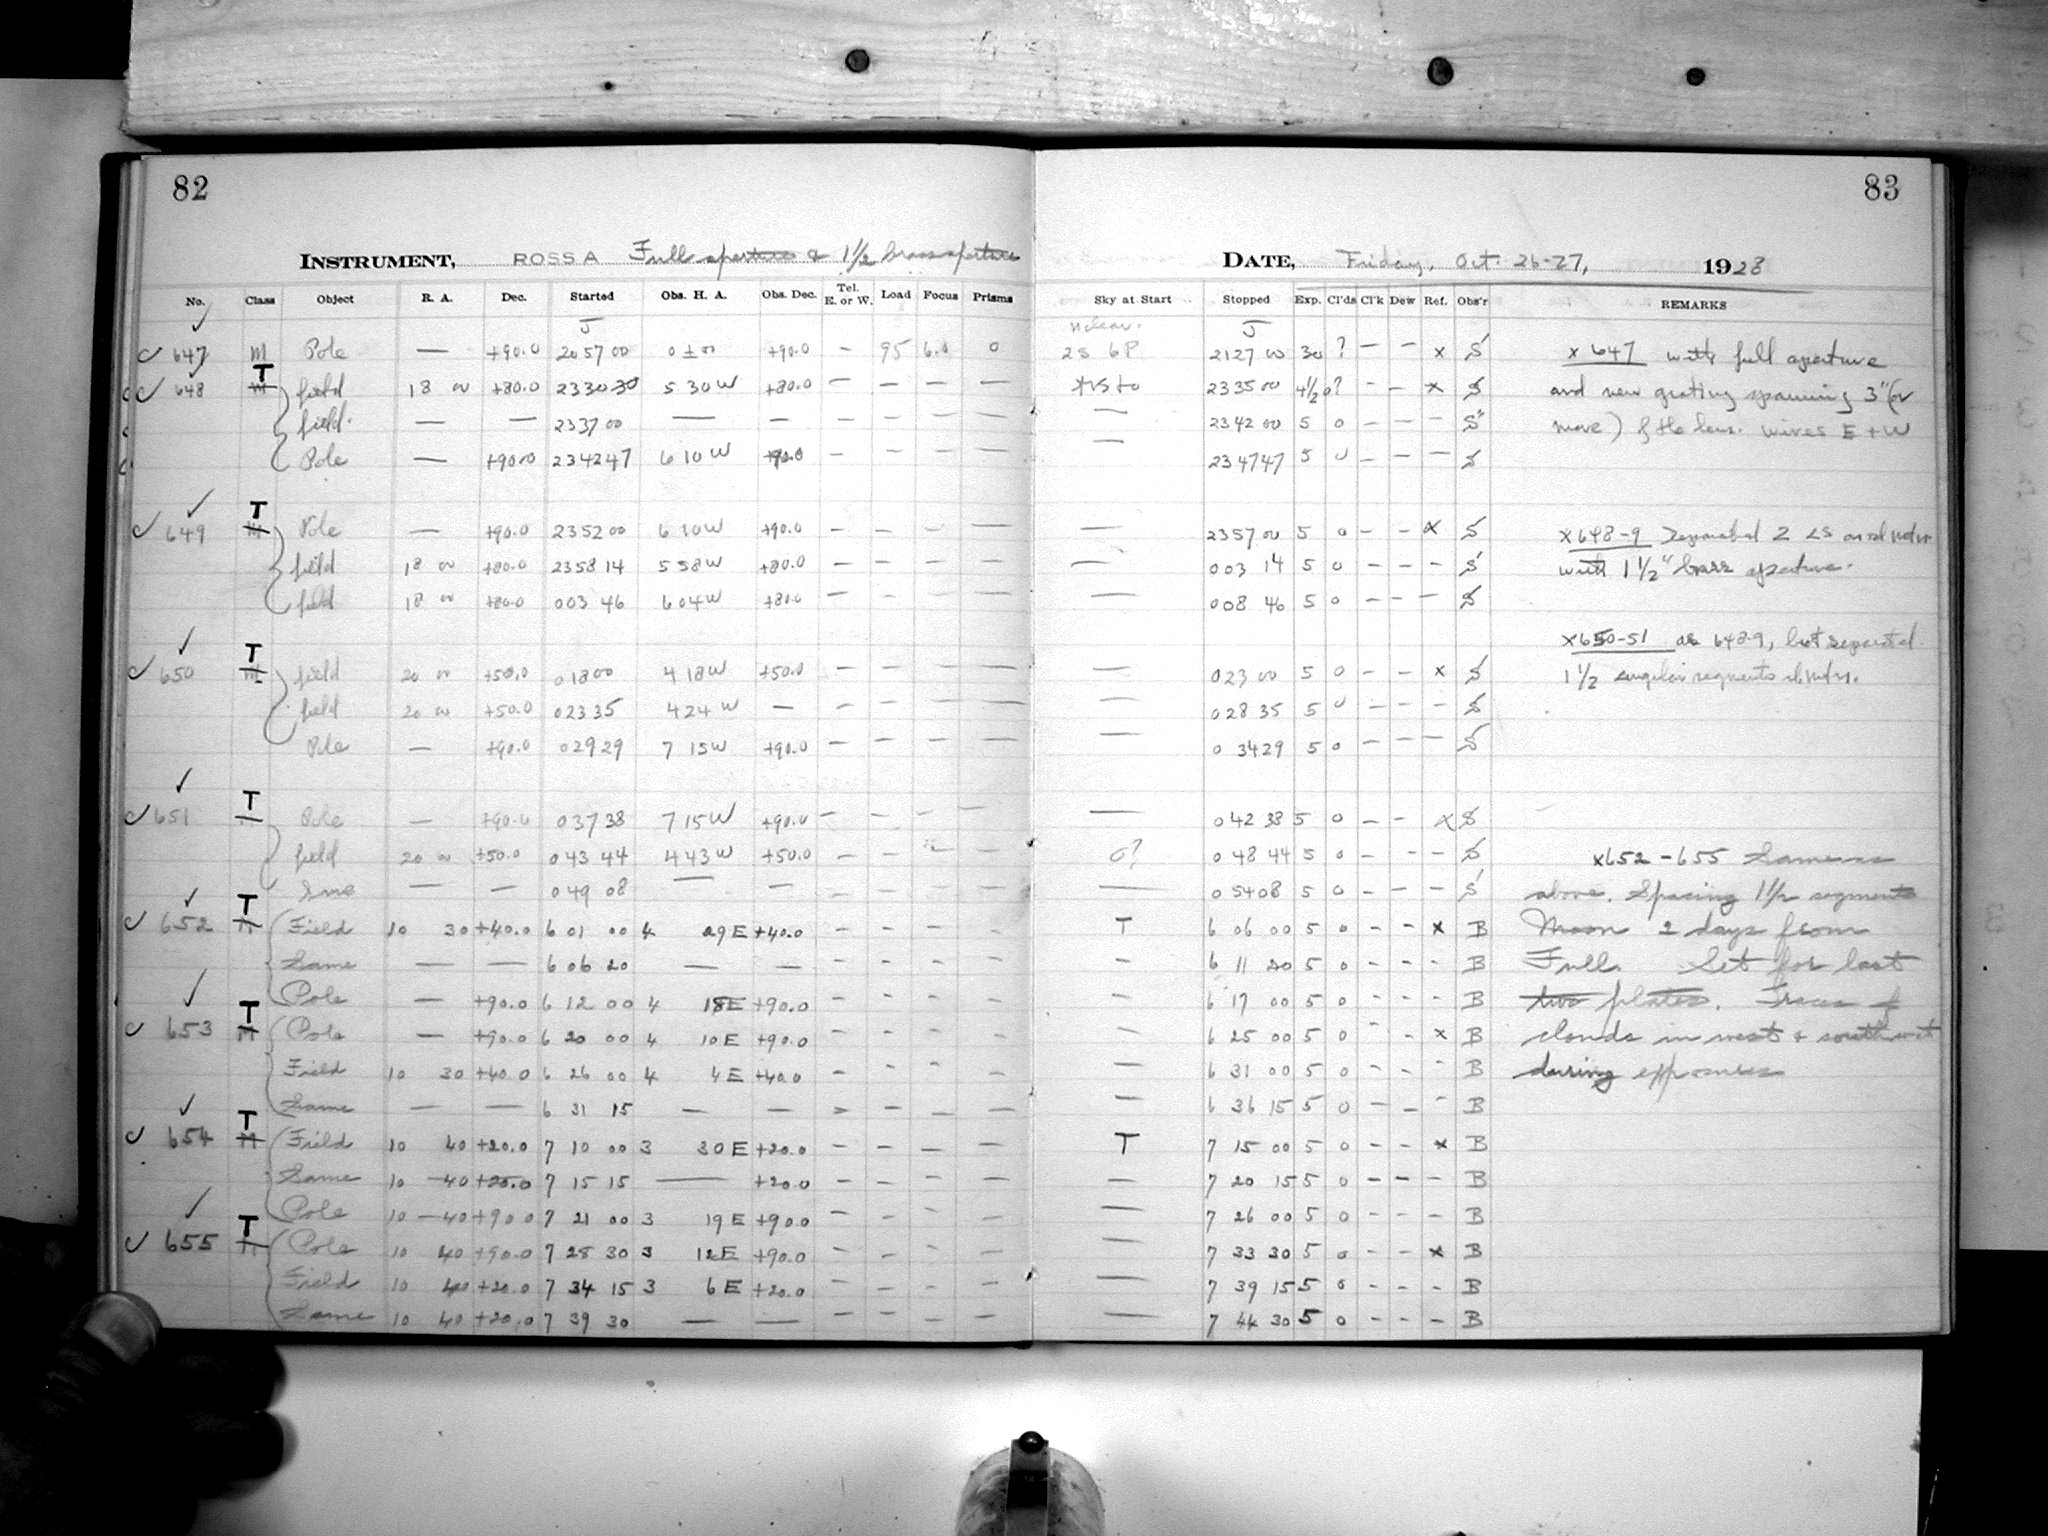 82
INSTRUMENT, ROSS A Full aperture & 1 1/2 brass aperture
No. Class Object R. A. Dec. Started Obs. H. A. Obs. Dec. Tel. E. or W. Load Focus Prisms
J
647 M Pole — +90.0 20 57 00 0 ± 00 +90.0 – 95 6.0 0
648 M T field 18 00 +80.0 23 30 30 5 30 W +80.0 – – – —
field. — — 23 37 00 — — – – – —
Pole — +90.0 23 42 47 6 10 W +90.0 – – – —
649 M T Pole — +90.0 23 52 00 6 10 W +90.0 – – – —
field 18 00 +80.0 23 58 14 5 58 W +80.0 – – – —
field 18 00 +80.0 0 03 46 6 04 W +80.0 – – – —
650 M T field 20 00 +50.0 0 18 00 4 18 W +50.0 – – – —
field 20 00 +50.0 0 23 35 4 24 W — – – – —
Pole — +90.0 0 29 29 7 15 W +90.0 – – – —
651 T Pole — +90.0 0 37 38 7 15 W +90.0 – – – –
field 20 00 +50.0 0 43 44 4 43 W +50.0 – – – –
Same — — 0 49 08 — — – – – –
652 T Field 10 30 +40.0 6 01 00 4 29 E +40.0 – – – –
Same — — 6 06 20 — — – – – –
Pole — +90.0 6 12 00 4 18 E +90.0 – – – –
653 M T Pole — +90.0 6 20 00 4 10 E +90.0 – – – –
Field 10 30 +40.0 6 26 00 4 4 E +40.0 – – – –
Same — — 6 31 15 — — – – – –
654 M T Field 10 40 +20.0 7 10 00 3 30 E +20.0 – – – –
Same 10 40 +20.0 7 15 15 — +20.0 – – – –
Pole 10 — 40 +90.0 7 21 00 3 19 E +90.0 – – – –
655 T Pole 10 40 +90.0 7 28 30 3 12 E +90.0 – – – –
Field 10 40 +20.0 7 34 15 3 6 E +20.0 – – – –
Same 10 40 +20.0 7 39 30 — — – – – –
83
DATE, Friday, Oct. 26-27, 1928
Sky at Start Stopped Exp. Cl'ds Cl'k Dew Ref. Obs'r REMARKS
J
2S 6P 21 27 00 30 ? – – x S x 647 with full aperture
23 35 00 4 1/2 0? – – x S and new grating spanning 3" (or
— 23 42 00 5 0 – – – S more) of the lens. wires E + W
— 23 47 47 5 0 – – – S
— 23 57 00 5 0 – – x S x 648-9 Separated
— 0 03 14 5 0 – – – S with 1 1/2" brass aperture.
— 0 08 46 5 0 – – – S
x 650-51 as 648-9, but separated
— 0 23 00 5 0 – – x S 1 1/2 segments
— 0 28 35 5 0 – – – S
— 0 34 29 5 0 – – – S
— 0 42 38 5 0 – – x S
0? 0 48 44 5 0 – – – S x652 - 655 Same as
— 0 54 08 5 0 – – – S above. Spacing 1 1/2 segments
T 6 06 00 5 0 – – x B Moon 2 days from
– 6 11 20 5 0 – – – B Full. Set for last
– 6 17 00 5 0 – – – B two plates. Traces of
– 6 25 00 5 0 – – x B clouds in west & southwest
— 6 31 00 5 0 – – – B during exposures
— 6 36 15 5 0 – – – B
T 7 15 00 5 0 – – x B
— 7 20 15 5 0 – – – B
— 7 26 00 5 0 – – – B
— 7 33 30 5 0 – – x B
— 7 39 15 5 0 – – – B
— 7 44 30 5 0 – – – B